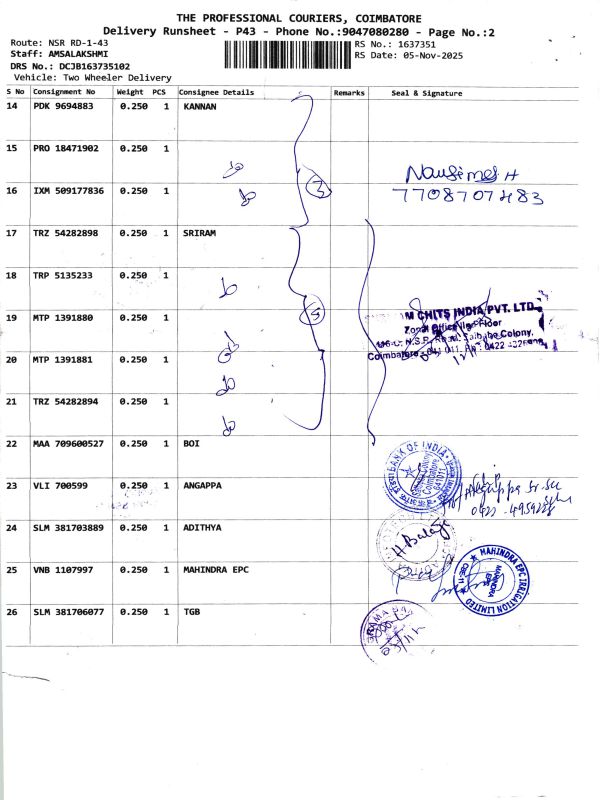 THE PROFESSIONAL COURIERS, COIMBATORE
Delivery Runsheet - P43 - Phone No.:9047080280 - Page No.:2
Route: NSR RD-1-43
Staff: AMSALAKSHMI
DRS No.: DCJB163735102
Vehicle: Two Wheeler Delivery
RS No.: 1637351
RS Date: 05-Nov-2025
S No Consignment No Weight PCS Consignee Details Remarks Seal & Signature
14 PDK 9694883 0.250 1 KANNAN
15 PRO 18471902 0.250 1
16 IXM 509177836 0.250 1
3
7708707483
17 TRZ 54282898 0.250 1 SRIRAM
18 TRP 5135233 0.250 1
19 MTP 1391880 0.250 1
5
M CHITS INDIA PVT. LTD
Zonal Office Floor
Saibaba Colony,
Coimbatore - 641 011. 0422
20 MTP 1391881 0.250 1
21 TRZ 54282894 0.250 1
22 MAA 709600527 0.250 1 BOI
BANK OF INDIA
Coimbatore
641011
23 VLI 700599 0.250 1 ANGAPPA
24 SLM 381703889 0.250 1 ADITHYA
H Balaji
25 VNB 1107997 0.250 1 MAHINDRA EPC
MAHINDRA EPC IRRIGATION LIMITED
CBE-11
MAHINDRA
EPC
26 SLM 381706077 0.250 1 TGB